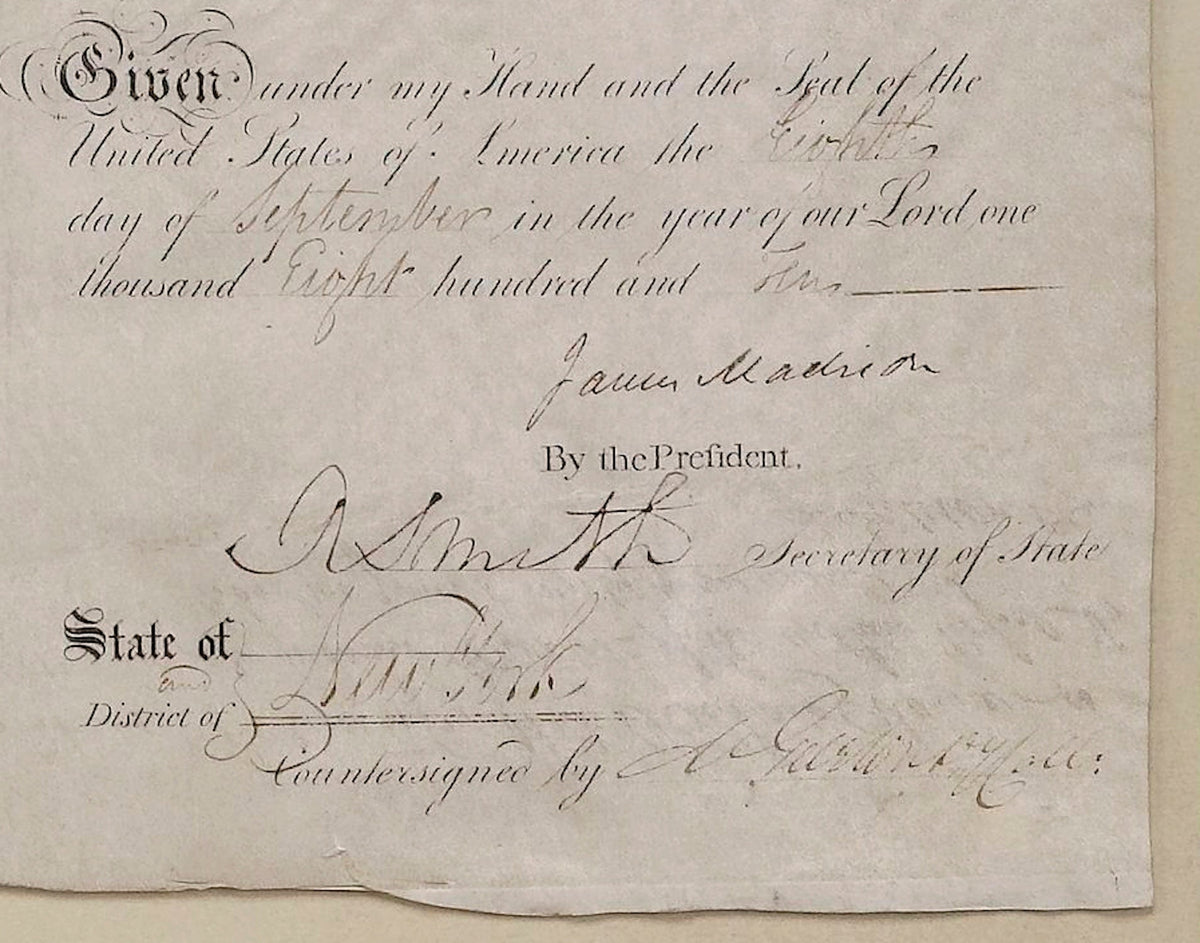 Given under my Hand and the Seal of the
United States of America the Eighth
day of September in the year of our Lord one
thousand Eight hundred and Ten
James Madison
By the Preſident.
R Smith Secretary of State
State of New York
and
District of
Countersigned by